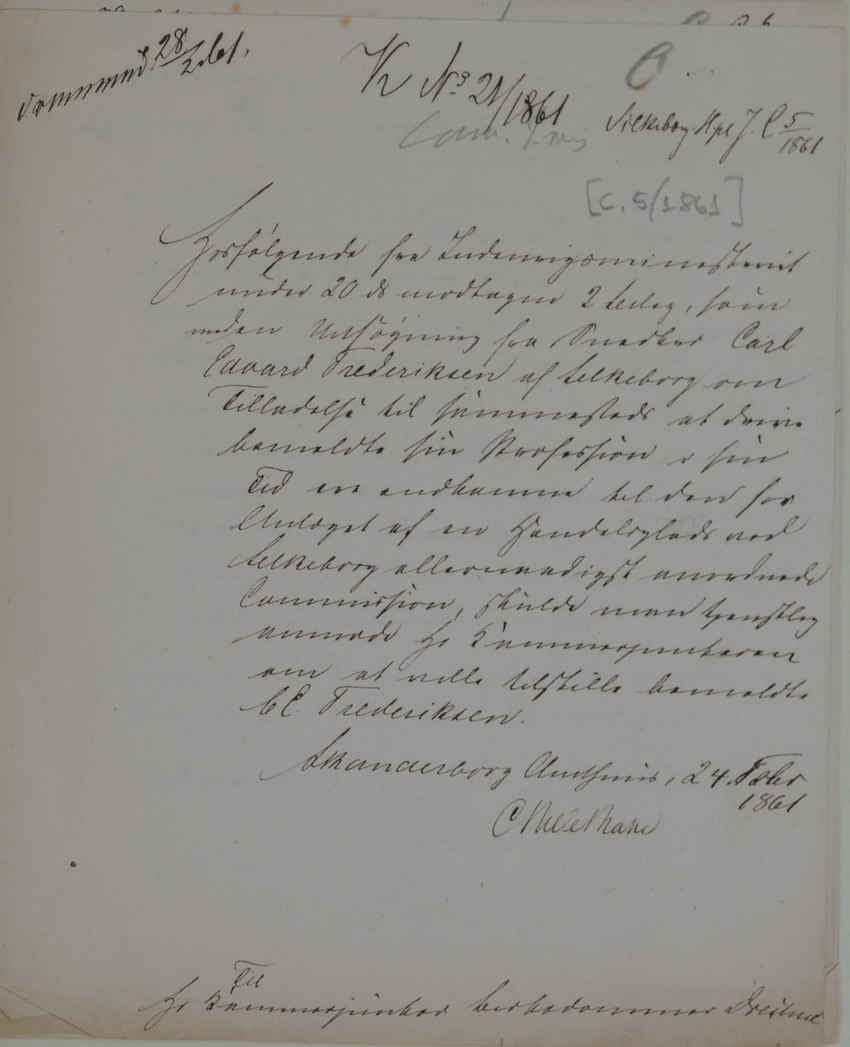 28/2 61.
K No 21/1861
Silkeborg Hpl J. C 5/1861
[C. 5/1861]
Hosfølgende fra Indenrigsministeriet
under 20 ds modtagne 2 Bilag, som
med en Ansøgning fra Snedker Carl
Edvard Frederiksen af Silkeborg om
Tilladelse til sammesteds at drive
bemeldte sin Profession i sin
Tid ere indkomne til den for
Anlæget af en Handelsplads ved
Silkeborg allernaadigst anordnede
Commission, skulde man tjenstlig
anmode Hr Kammerjunkeren
om at ville tilstille bemeldte
C E. Frederiksen.
Skanderborg Amthuus, 24 Febr
1861
Til
Hr Kammerjunker Birkedommer